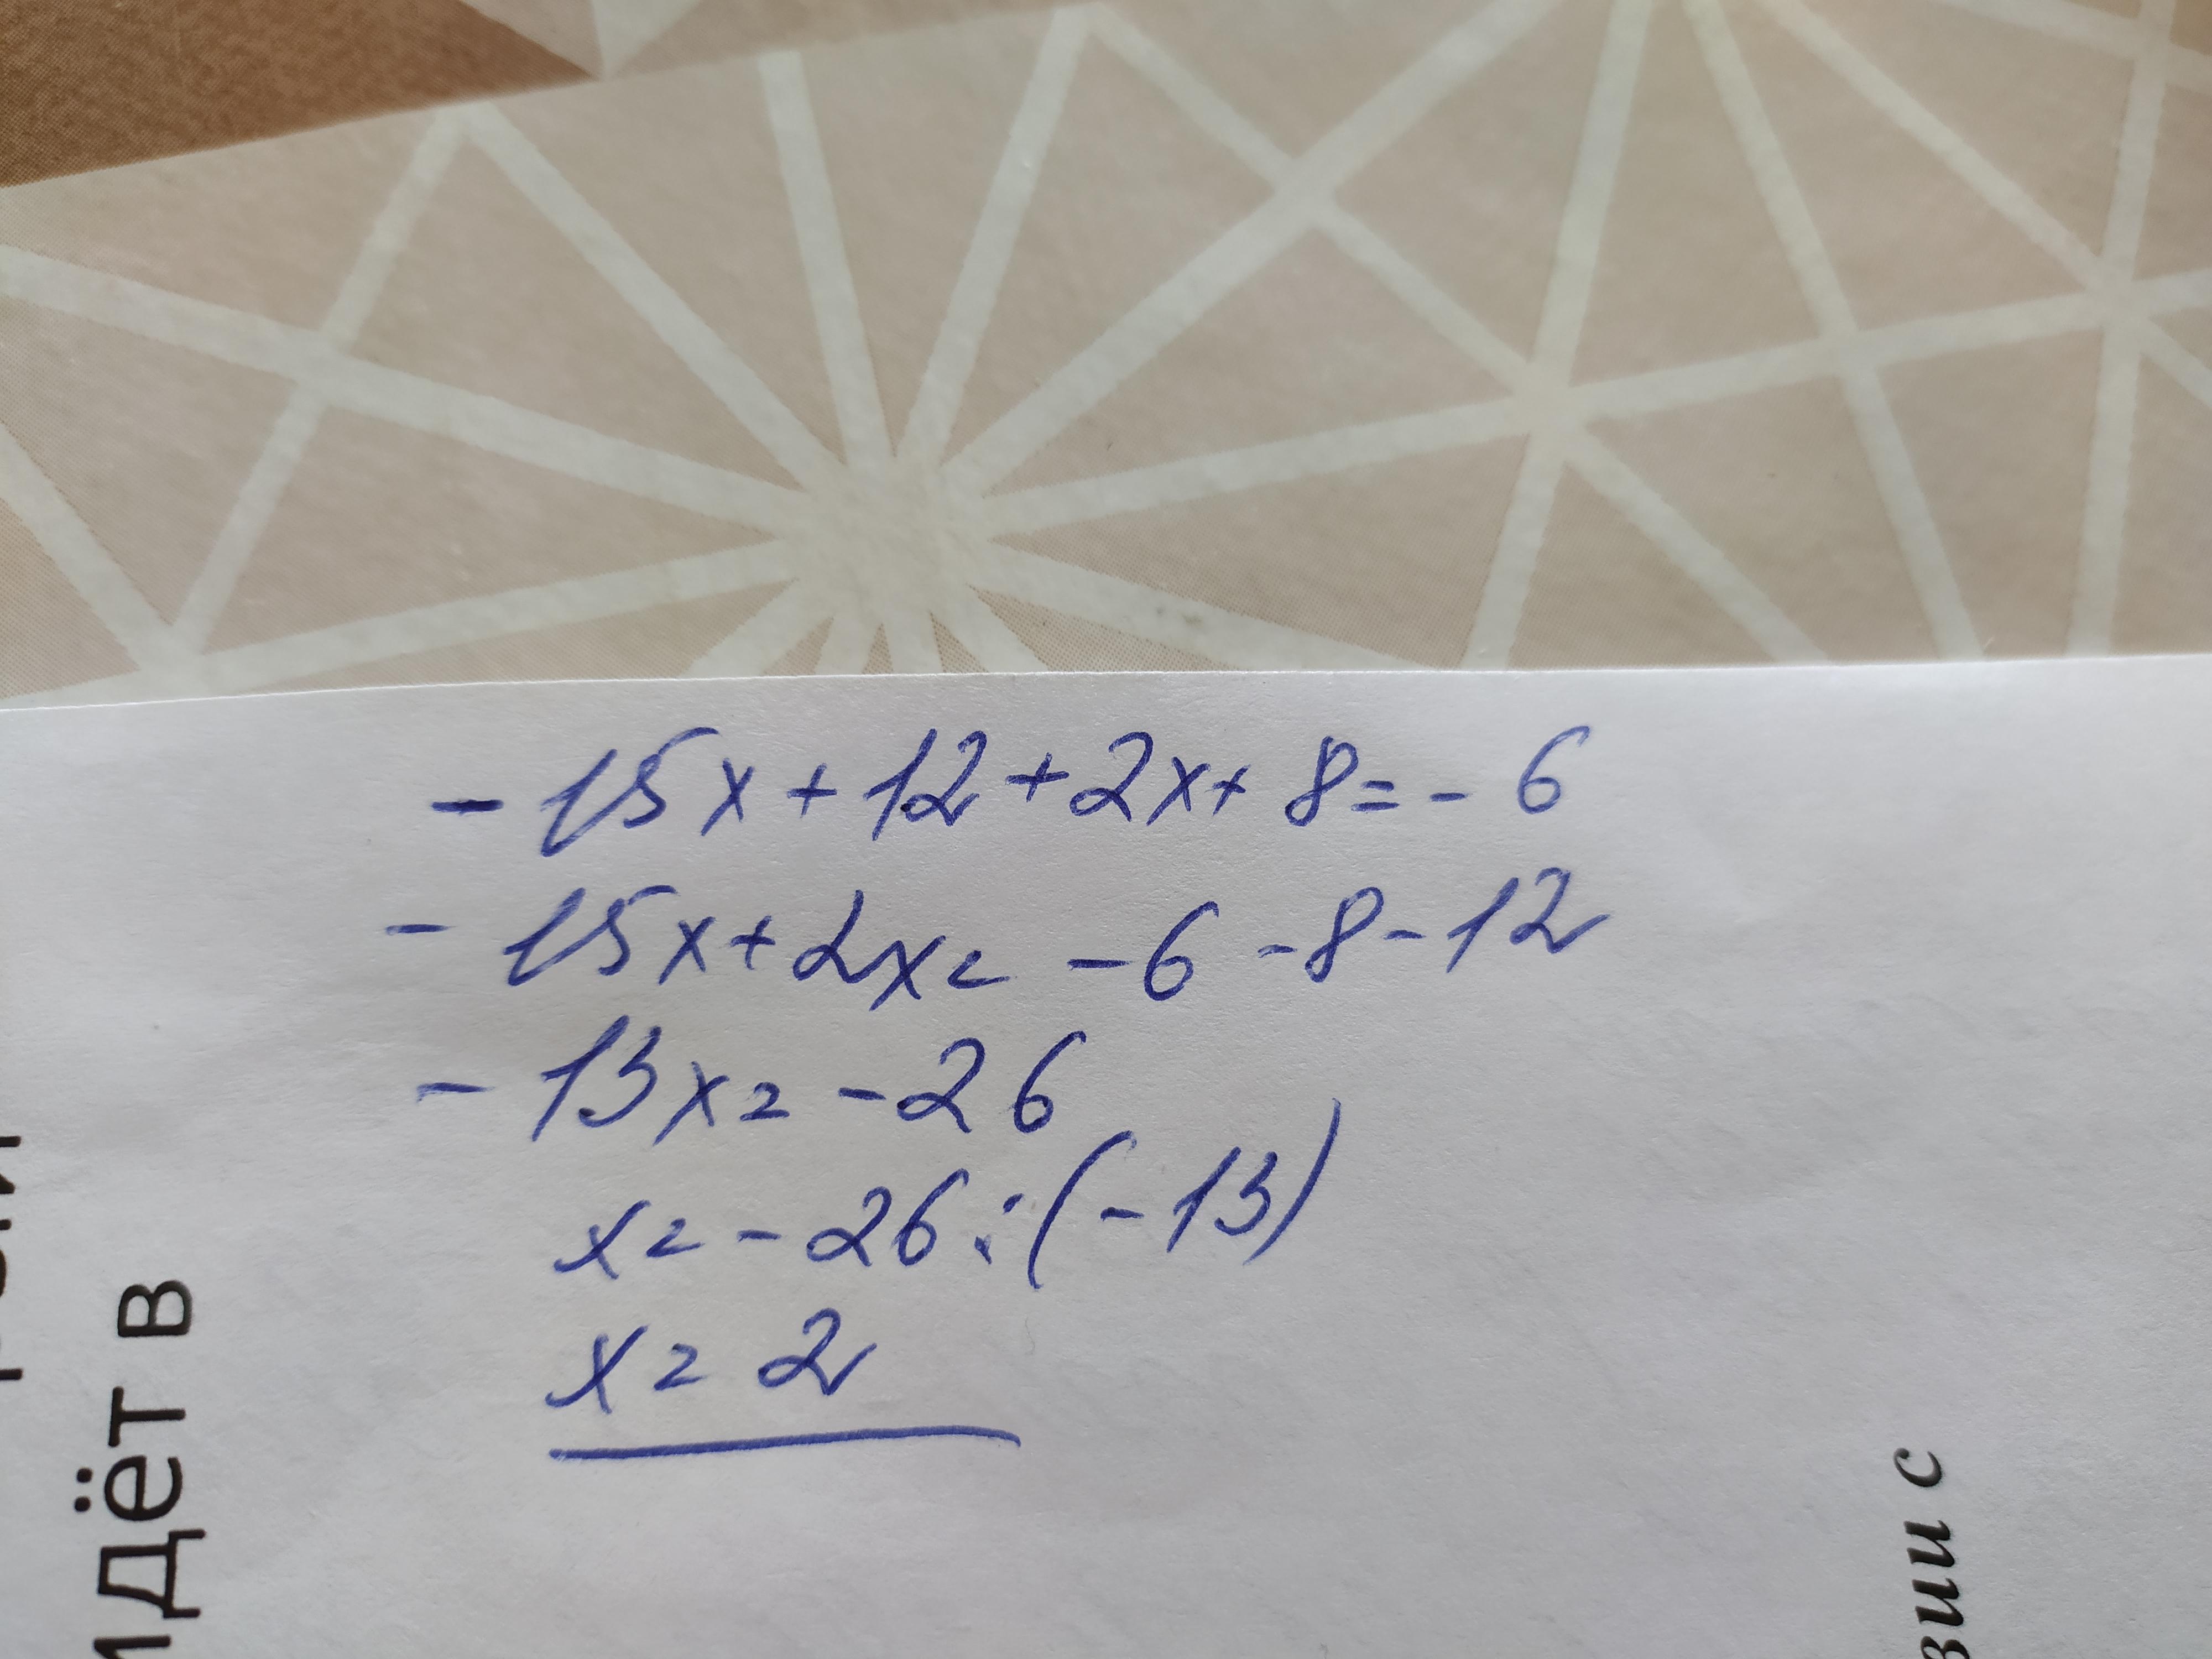 - 15x + 12 + 2x + 8 = - 6
- 15x + 2x = - 6 - 8 - 12
- 13x = - 26
x = - 26 : (- 13)
x = 2
идёт в
зии с